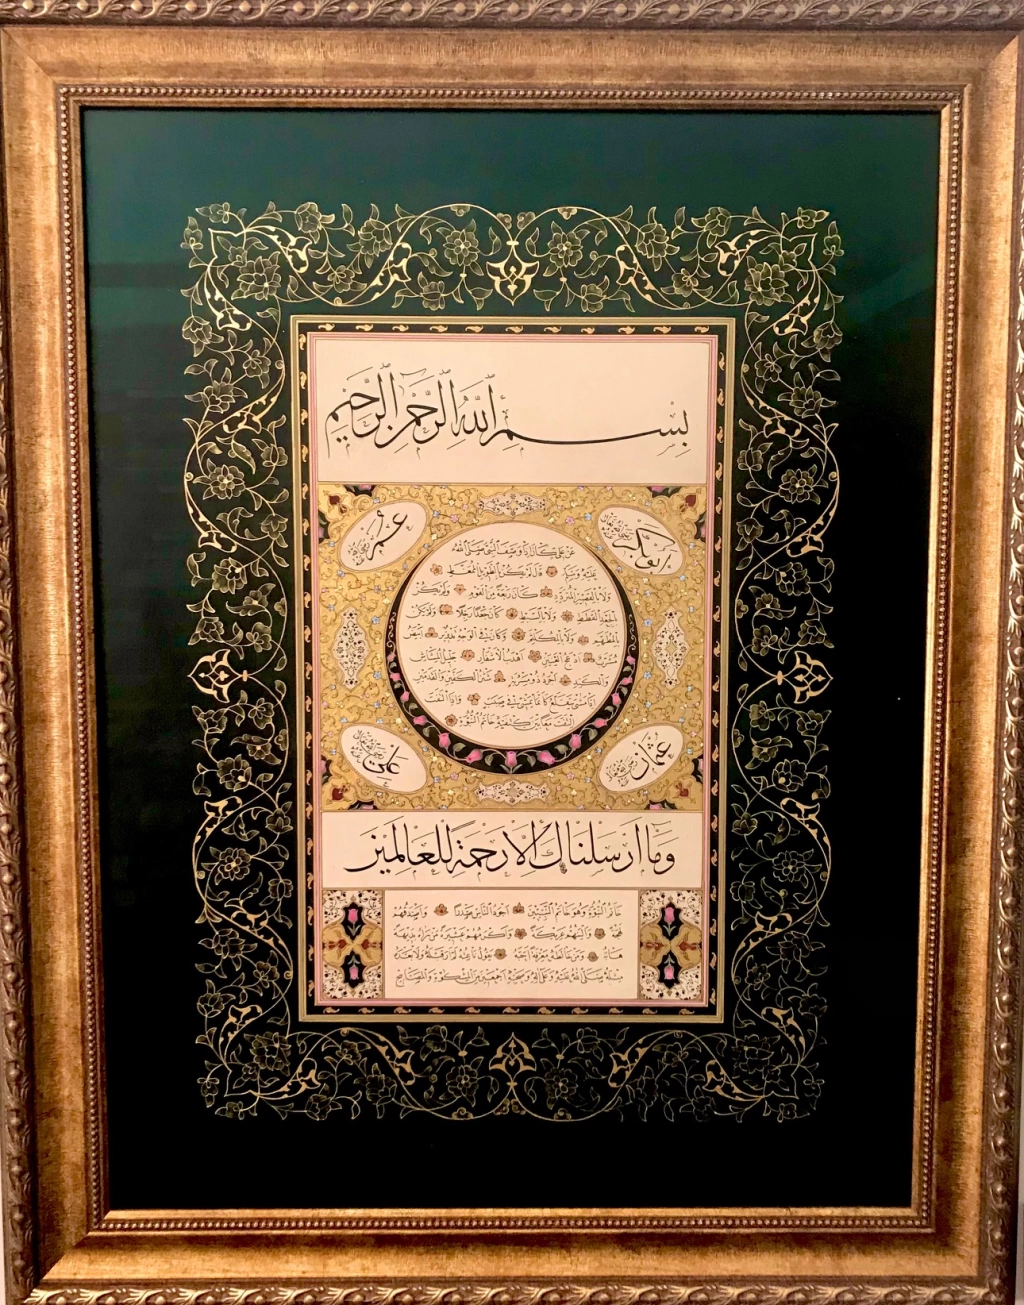 بِسْمِ اللّٰهِ الرَّحْمٰنِ الرَّحِيمِ
ابوبكر
عمر
عَنْ عَلِيٍّ كَانَ اِذَا وَصَفَ النَّبِيَّ صَلَّى اللّٰهُ
عَلَيْهِ وَسَلَّمَ قَالَ لَمْ يَكُنْ بِالطَّوِيلِ الْمُمَغَّطِ
وَلَا بِالْقَصِيرِ الْمُتَرَدِّدِ كَانَ رَبْعَةً مِنَ الْقَوْمِ وَلَمْ يَكُنْ
بِالْجَعْدِ الْقَطَطِ وَلَا بِالسَّبْطِ كَانَ جَعْدًا رَجِلًا وَلَمْ يَكُنْ
بِالْمُطَهَّمِ وَلَا بِالْمُكَلْثَمِ وَكَانَ فِي الْوَجْهِ تَدْوِيرٌ اَبْيَضُ
مُشْرَبٌ اَدْعَجُ الْعَيْنَيْنِ اَهْدَبُ الْاَشْفَارِ جَلِيلُ الْمُشَاشِ
وَالْكَتَدِ اَجْرَدُ ذُو مَسْرُبَةٍ شَثْنُ الْكَفَّيْنِ وَالْقَدَمَيْنِ
اِذَا مَشَى تَقَلَّعَ كَاَنَّمَا يَمْشِي فِي صَبَبٍ وَاِذَا الْتَفَتَ
الْتَفَتَ مَعًا بَيْنَ كَتِفَيْهِ خَاتَمُ النُّبُوَّةِ
عثمان
على
وَمَا اَرْسَلْنَاكَ اِلَّا رَحْمَةً لِلْعَالَمِينَ
خَاتَمُ النُّبُوَّةِ وَهُوَ خَاتَمُ النَّبِيِّينَ اَجْوَدُ النَّاسِ صَدْرًا وَاَصْدَقُهُمْ
لَهْجَةً وَاَلْيَنُهُمْ عَرِيكَةً وَاَكْرَمُهُمْ عَشِيرَةً مَنْ رَاٰهُ بَدِيهَةً
هَابَهُ وَمَنْ خَالَطَهُ مَعْرِفَةً اَحَبَّهُ يَقُولُ نَاعِتُهُ لَمْ اَرَ قَبْلَهُ وَلَا بَعْدَهُ
مِثْلَهُ صَلَّى اللّٰهُ عَلَيْهِ وَعَلٰى اٰلِهِ وَصَحْبِهِ اَجْمَعِينَ